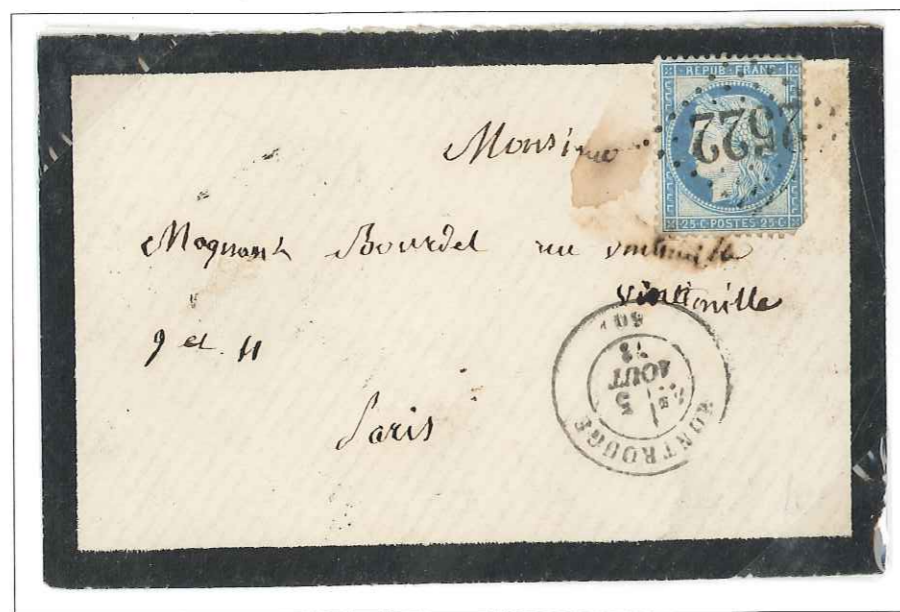 REPUB·FRANC
2522
25·C POSTES 25·C
Monsieur
Magnant Bourdet rue
vintimille
9 et 11
Paris
MONTROUGE
5
AOUT
73
60